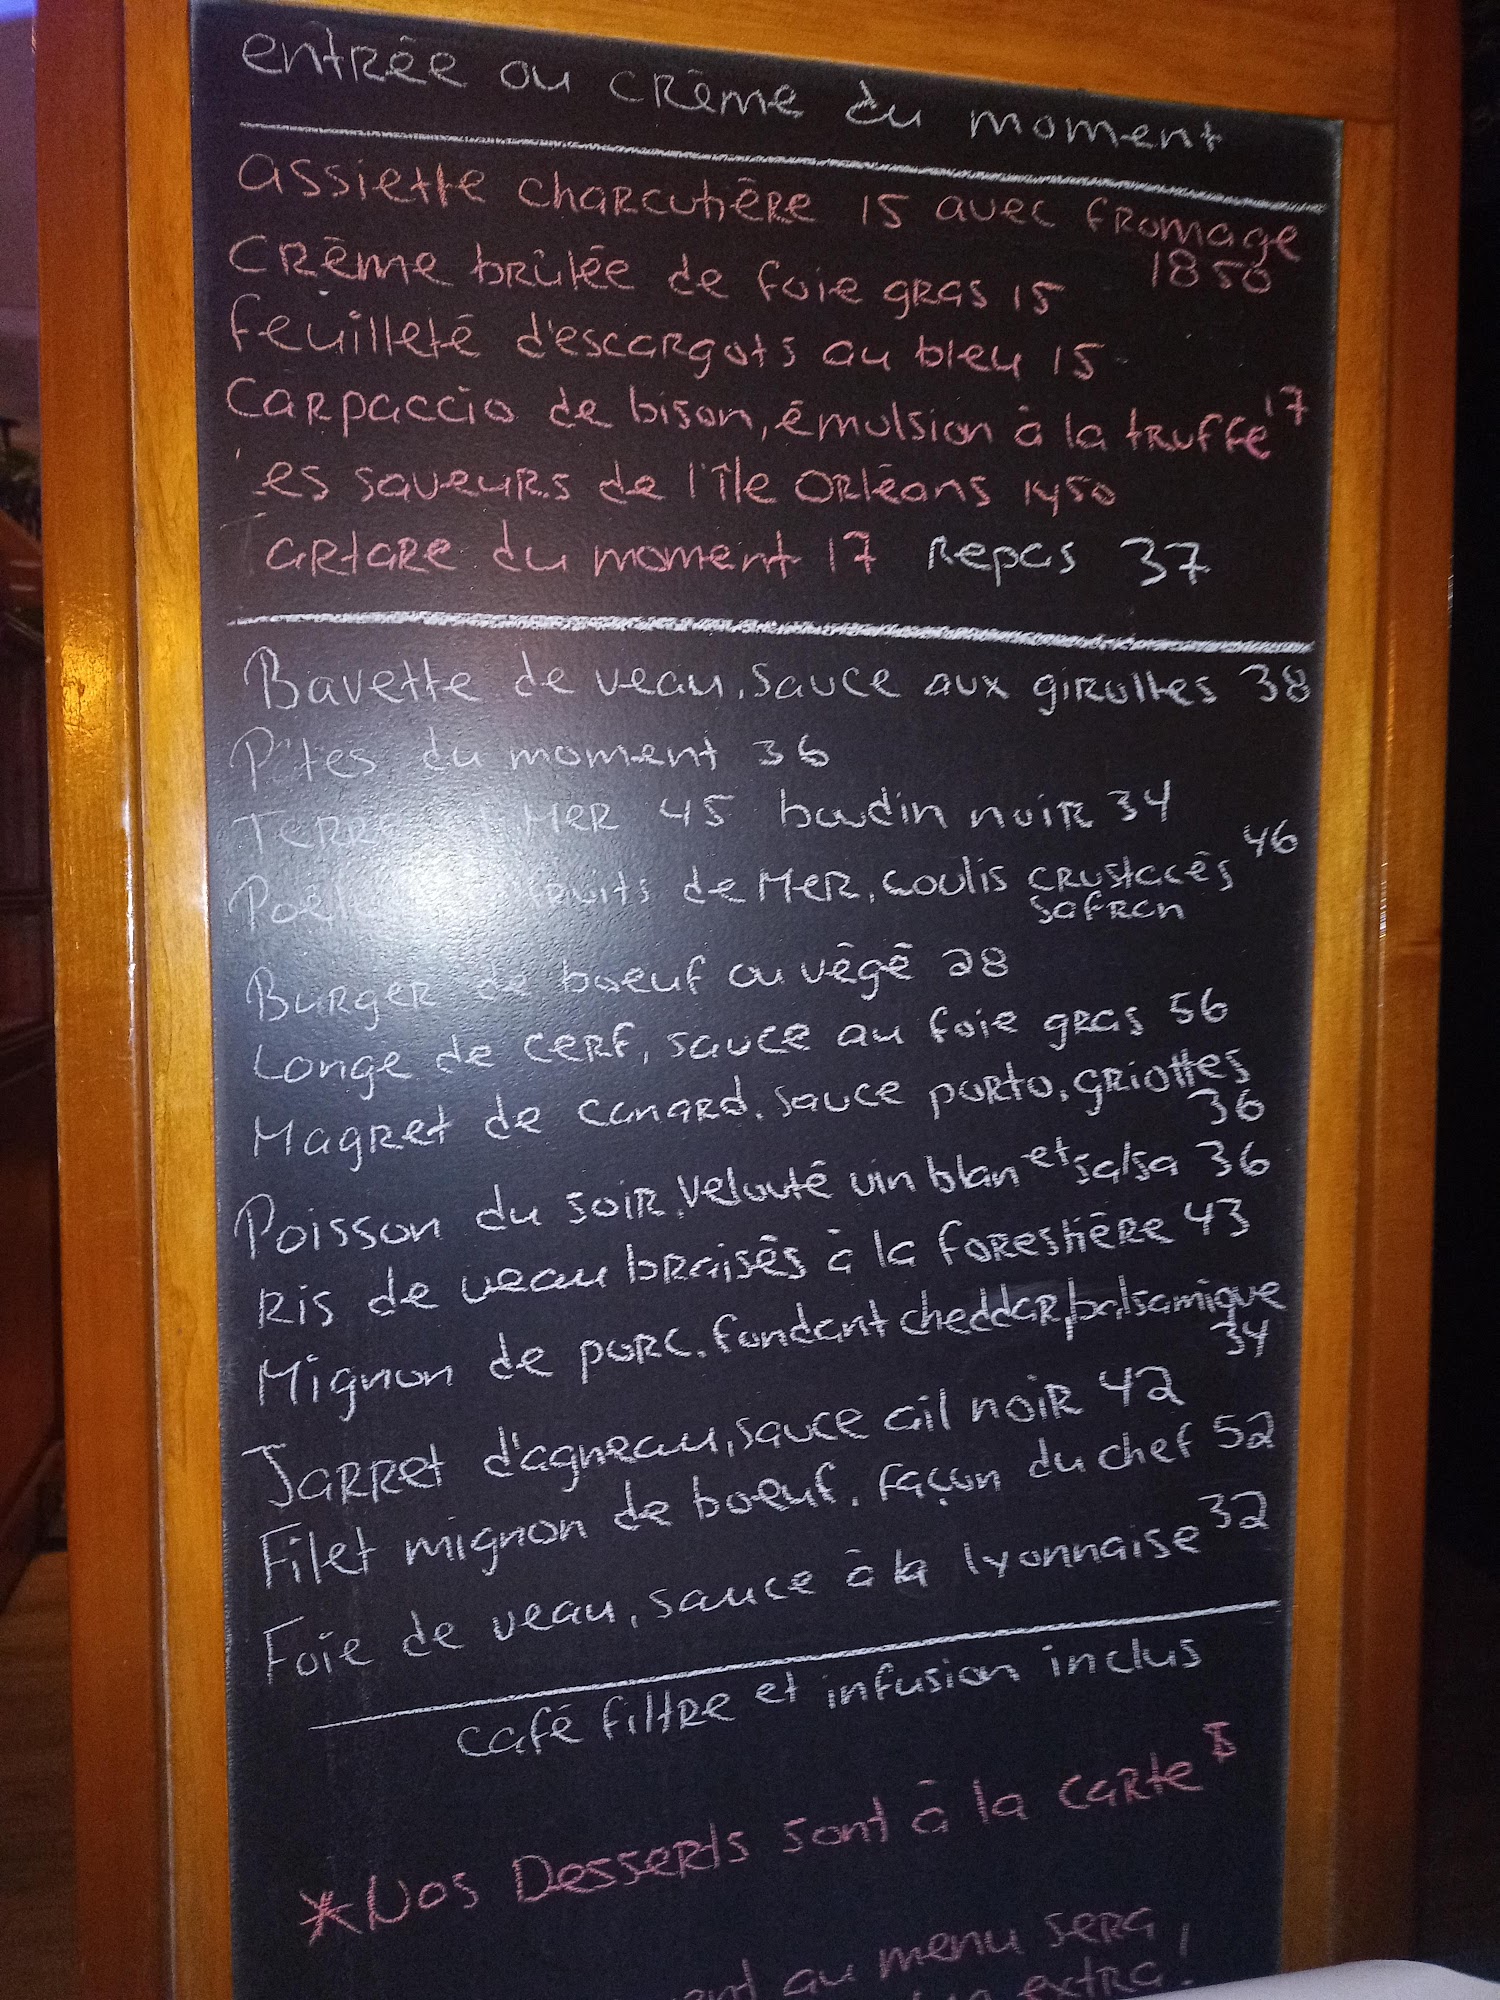 entrée ou crème du moment
assiette charcutière 15 avec fromage
1850
Crème brûlée de foie gras 15
feuilleté d'escargots au bleu 15
Carpaccio de bison, émulsion à la truffe 17
es saveurs de l'île Orléans 1450
Tartare du moment 17 Repas 37
Bavette de veau, sauce aux girolles 38
Pâtes du moment 36
MER 45 boudin noir 34
fruits de MER, coulis crustacés 46
safran
Burger de boeuf ou végé 28
Longe de cerf, sauce au foie gras 56
Magret de canard, sauce porto, griottes
36
Poisson du soir, velouté vin blan et salsa 36
Ris de veau braisés à la forestière 43
Mignon de porc, fondant cheddar, balsamique
34
Jarret d'agneau, sauce ail noir 42
Filet mignon de boeuf, façon du chef 52
Foie de veau, sauce à la lyonnaise 32
café filtre et infusion inclus
*Nos Desserts sont à la carte
au menu sera
extra!